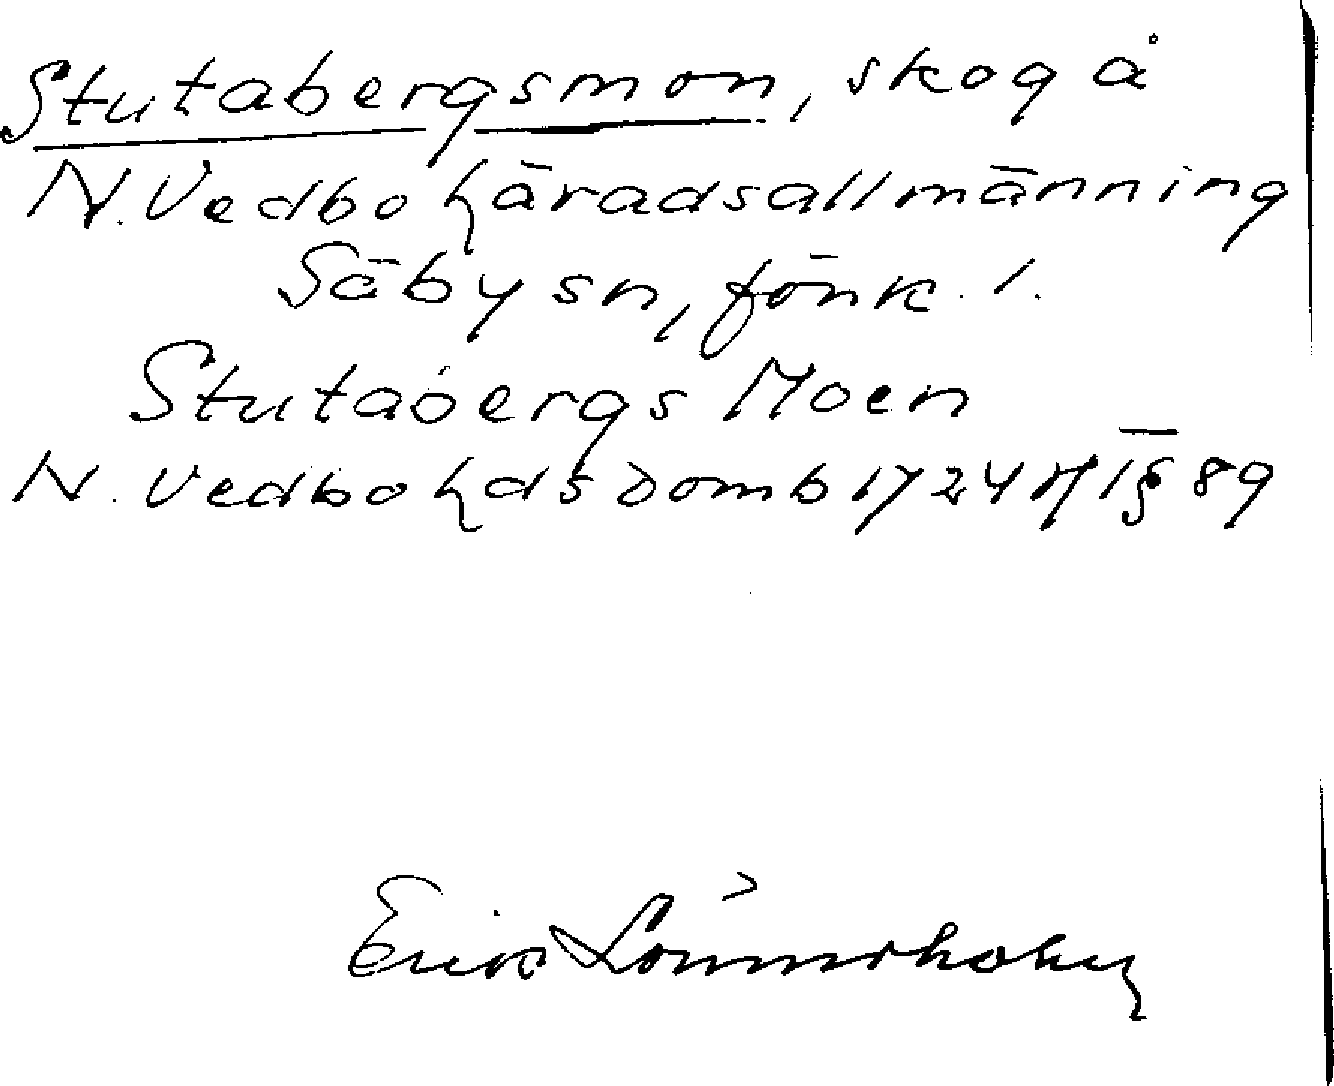 Stutabergsmon, skog å
N. Vedbo häradsallmänning
Säby sn, Jönk. l.
Stutabergs Moen
N. Vedbo hds domb 1724 § 89
Erik